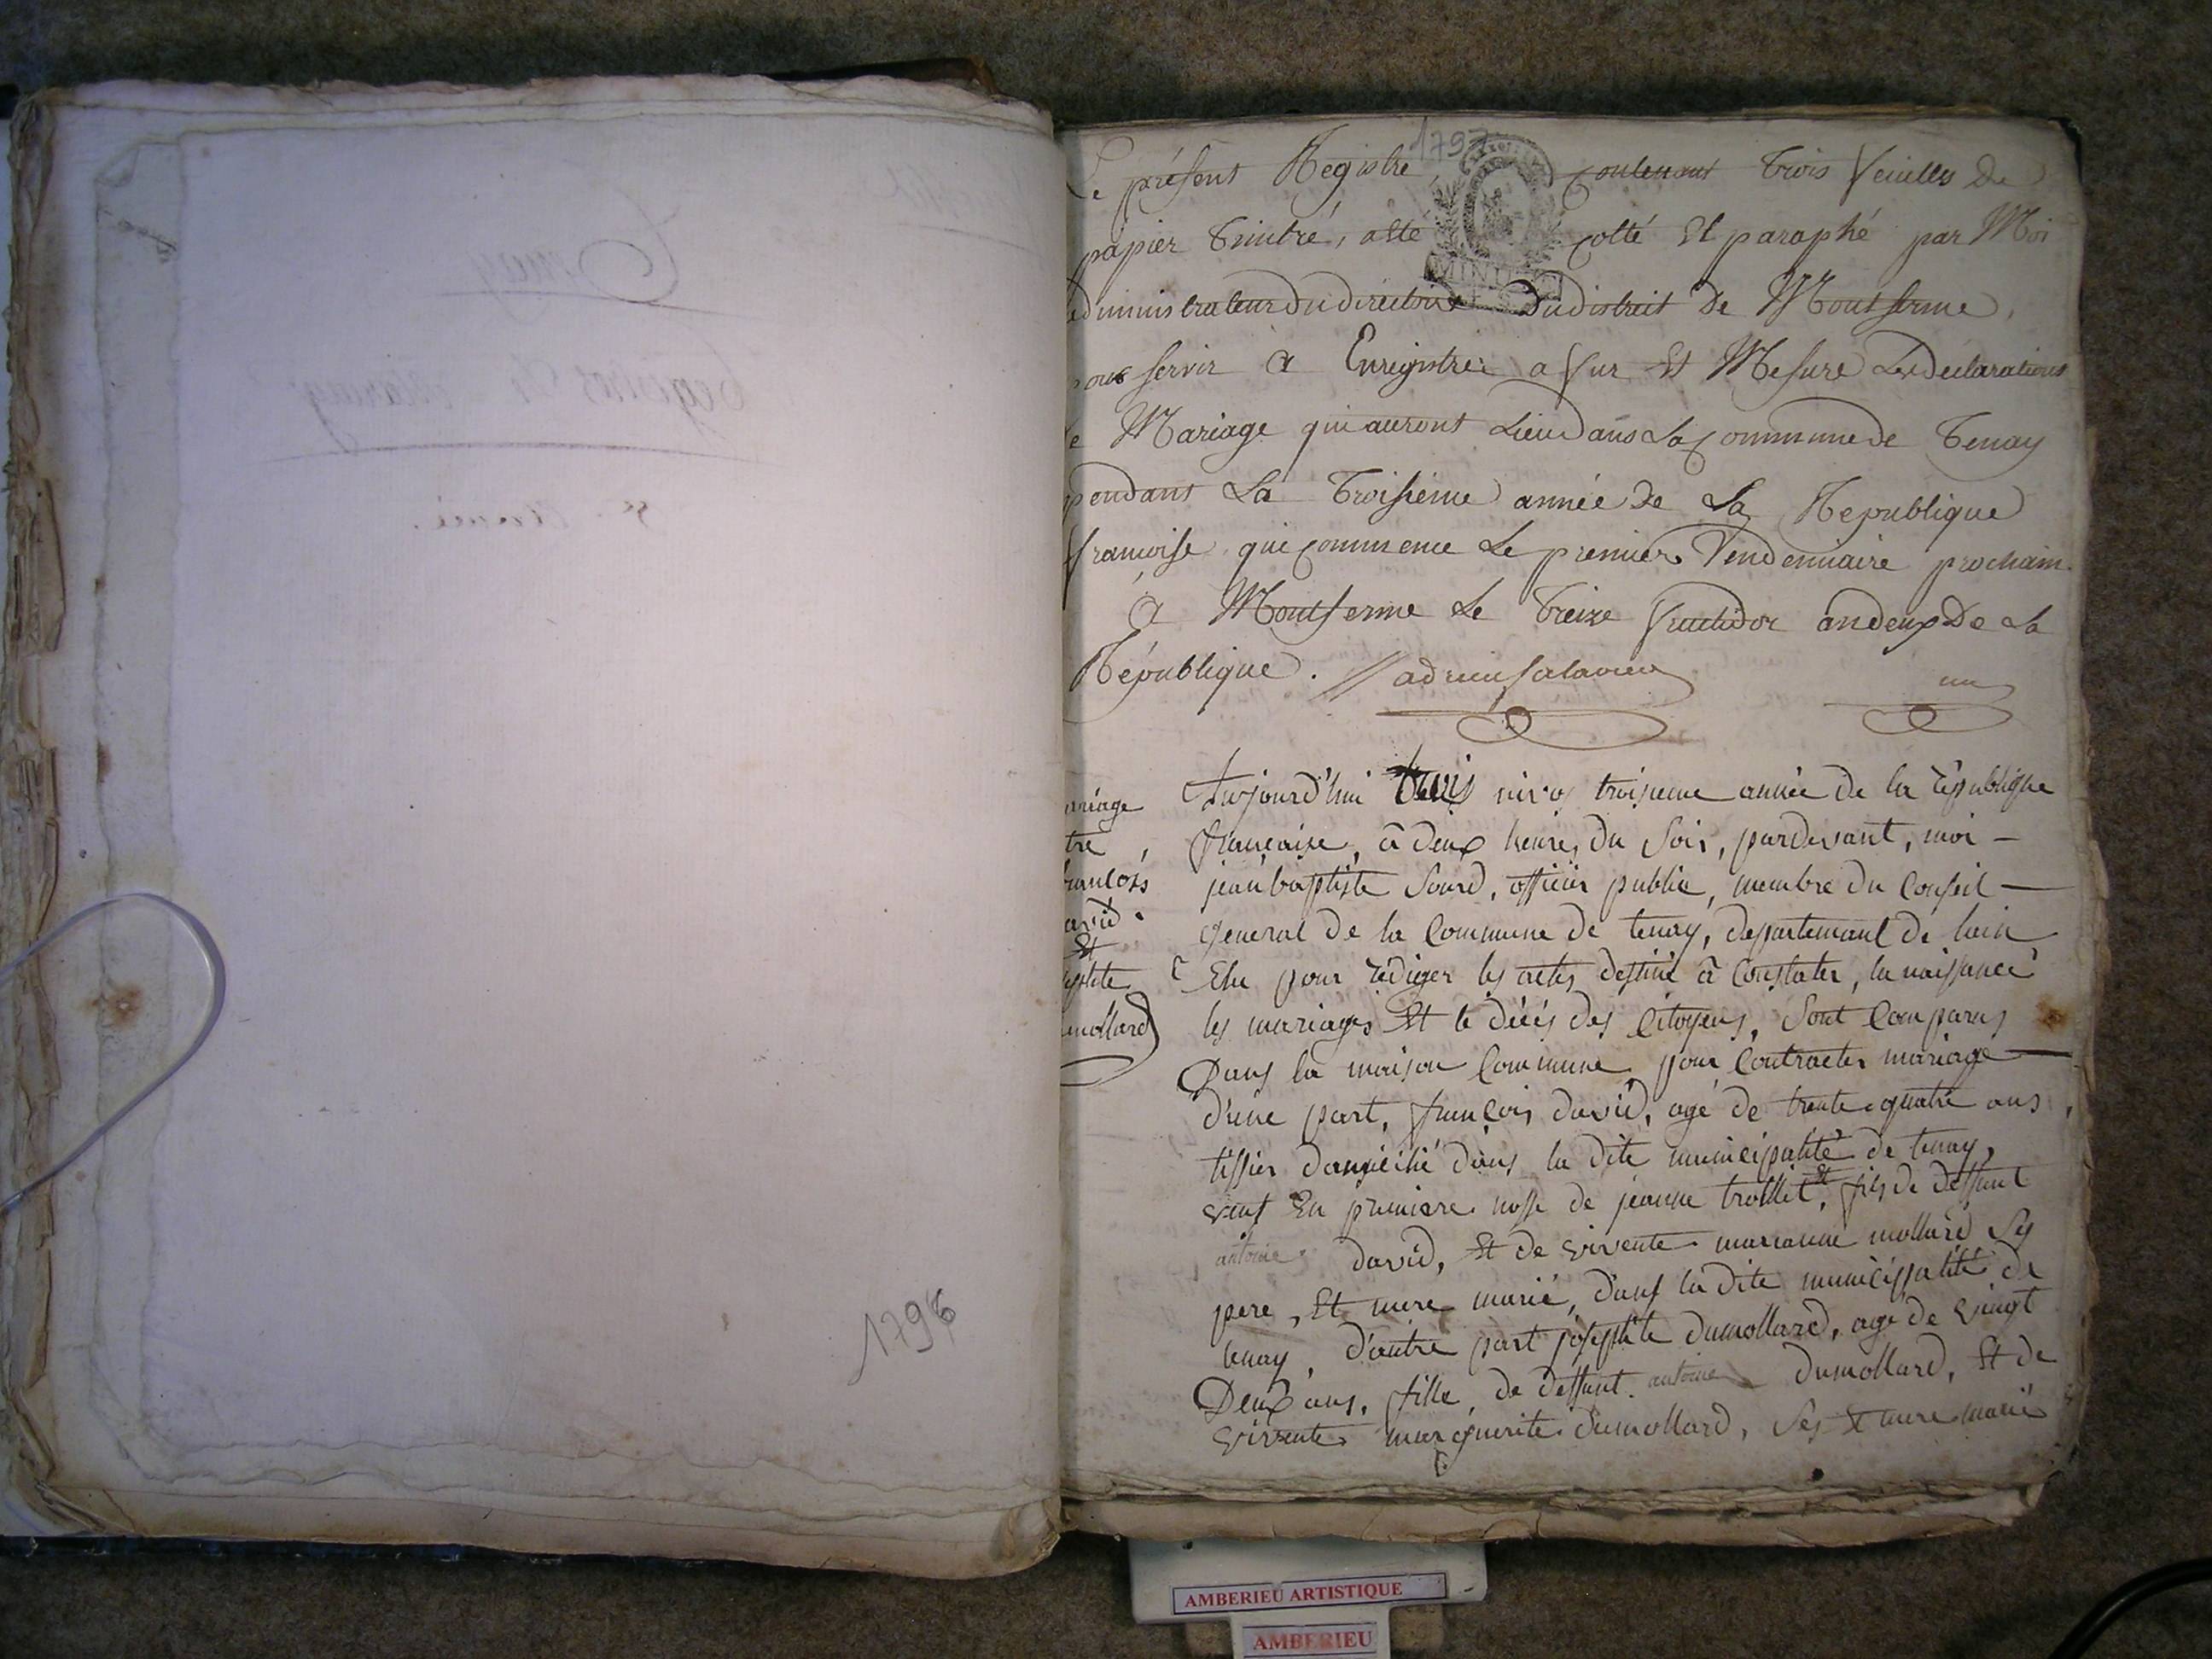 1796
1797
Le présent Registre, contenant trois feuilles de
papier timbré, a eté cotté Et paraphé par Moi
administrateur du directoire du district de Montferme,
pour servir a Enregistrer a fur Et Mesure Les declarations
de Mariage qui auront Lieu dans La Commune de Tenay
pendant La troisieme année de La Republique
francoise qui commence Le premier Vendemiaire prochain.
a Montferme Le treize fructidor an deux De La
République.
mariage
tre
francois
david.
Et
josephte
dumollard
Aujourd'hui trois nivos troisieme année de la république
française, à deux heures du soir, pardevant, moi -
jean baptiste Sourd, officier public, membre du Conseil -
general de la Commune de tenay, departemant de lain
Elu pour rédiger les actes destiné à Constater, la naissance
les mariages Et le décès des Citoyens, sont Comparus
Dans la maison Commune pour Contracter mariage -
d'une part, françois david, agé de trente quatre ans,
tissier domicilié dans la dite municipalité de tenay,
veuf En premiere nosse de jeanne trollict, Et fils de deffunt
antoine david, Et de vivente marianne mollard Ses
pere, Et mere marié, dans la dite municipalité de
tenay, d'autre part josephte dumollard, agé de vingt
Deux ans, fille de deffunt antoine dumollard, Et de
vivente marguerite dumollard, Ses Et mere marié
AMBERIEU ARTISTIQUE
AMBERIEU